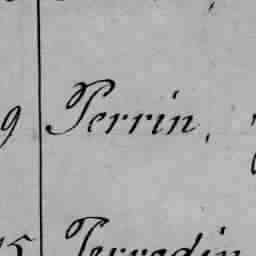 9 Perrin,
15 Perrodin